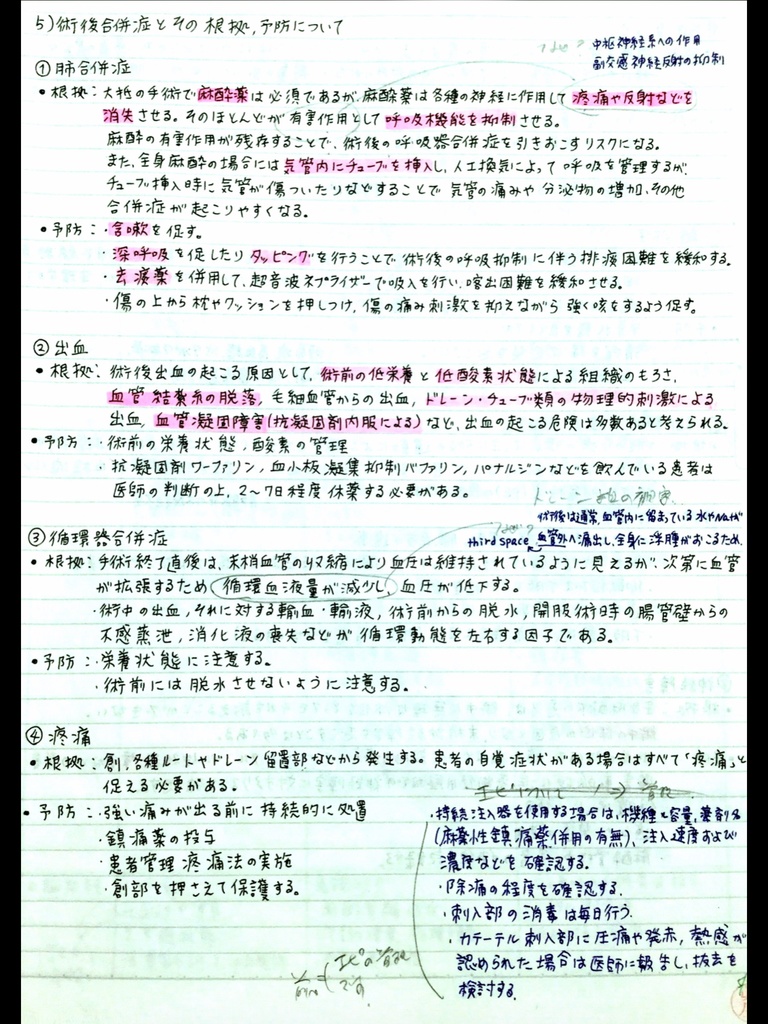 5)術後合併症とその根拠,予防について
中枢神経系への作用
副交感神経反射の抑制
①肺合併症
•根拠:大抵の手術で麻酔薬は必須であるが、麻酔薬は各種の神経に作用して疼痛や反射などを
消失させる。そのほとんどが有害作用として呼吸機能を抑制させる。
麻酔の有害作用が残存することで、術後の呼吸器合併症を引きおこすリスクになる。
また、全身麻酔の場合には気管内にチューブを挿入し、人工換気によって呼吸を管理するが、
チューブ挿入時に気管が傷ついたりなどすることで気管の痛みや分泌物の増加、その他
合併症が起こりやすくなる。
•予防:・含嗽を促す。
・深呼吸を促したりタッピングを行うことで術後の呼吸抑制に伴う排痰困難を緩和する。
・去痰薬を併用して、超音波ネブライザーで吸入を行い、喀出困難を緩和させる。
・傷の上から枕やクッションを押しつけ、傷の痛み刺激を抑えながら強く咳をするよう促す。
②出血
•根拠:術後出血の起こる原因として、術前の低栄養と低酸素状態による組織のもろさ、
血管結紮糸の脱落、毛細血管からの出血、ドレーン・チューブ類の物理的刺激による
出血、血管凝固障害(抗凝固剤内服による)など、出血の起こる危険は多数あると考えられる。
•予防:・術前の栄養状態,酸素の管理
・抗凝固剤ワーファリン,血小板凝集抑制バファリン,パナルジンなどを飲んでいる患者は
医師の判断の上、2〜7日程度休薬する必要がある。
ドレーン
術後は通常,血管内に留まっている水やNaが
③循環器合併症
third space 血管外へ漏出し、全身に浮腫がおこるため、
•根拠:手術終了直後は、末梢血管の収縮により血圧は維持されているように見えるが、次第に血管
が拡張するため循環血液量が減少し、血圧が低下する。
・術中の出血,それに対する輸血・輸液,術前からの脱水,開腹術時の腸管壁からの
不感蒸泄,消化液の喪失などが循環動態を左右する因子である。
•予防:・栄養状態に注意する。
・術前には脱水させないように注意する。
④疼痛
•根拠:創,各種ルートやドレーン留置部などから発生する。患者の自覚症状がある場合はすべて「疼痛」と
捉える必要がある。
•予防:・強い痛みが出る前に持続的に処置
・鎮痛薬の投与
・患者管理疼痛法の実施
・創部を押さえて保護する。
・持続注入器を使用する場合は,機種と容量,薬剤名
(麻薬性鎮痛薬併用の有無)、注入速度および
濃度などを確認する。
・除痛の程度を確認する.
・刺入部の消毒は毎日行う.
・カテーテル刺入部に圧痛や発赤,熱感が
認められた場合は医師に報告し,抜去を
検討する.